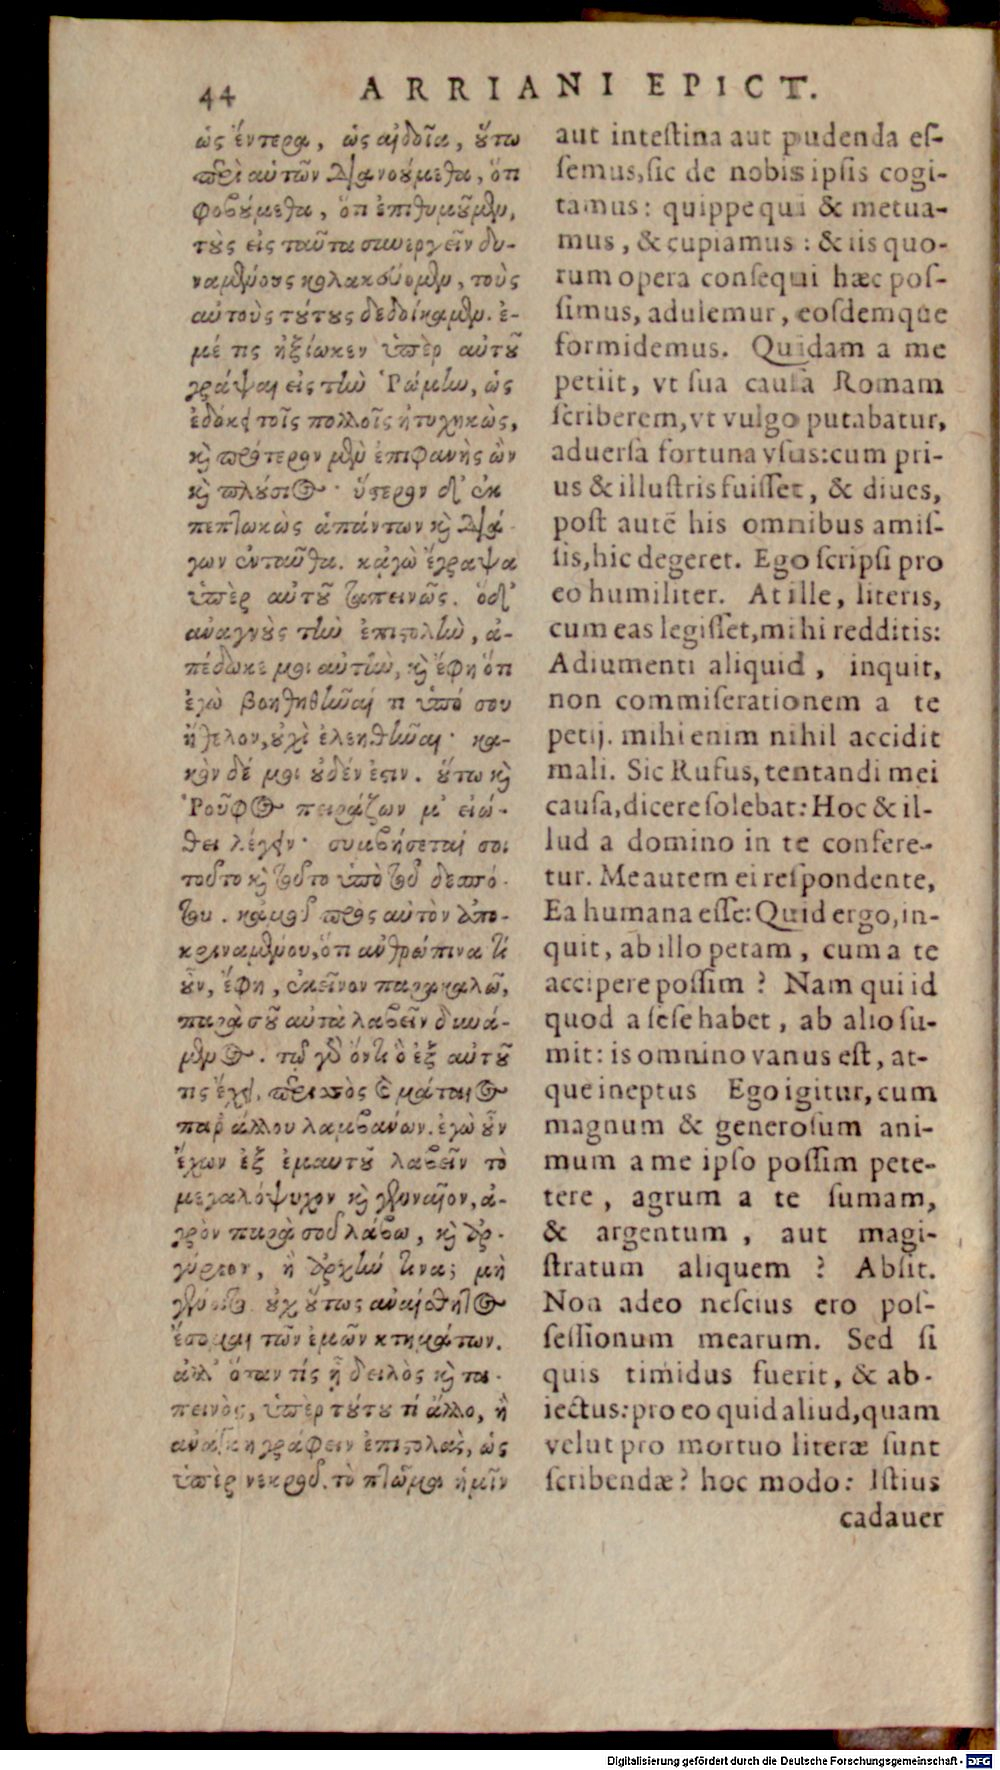 44 ARRIANI EPICT.
ὡς ἔντερα, ὡς αἰδοῖα, οὕτω
περὶ αὑτῶν διανούμεθα, ὅτι
φοβούμεθα, ὅτι ἐπιθυμοῦμεν,
τοὺς εἰς ταῦτα συνεργεῖν δυ-
ναμένους κολακεύομεν, τοὺς
αὐτοὺς τούτους δεδοίκαμεν. ἐ-
μέ τις ἠξίωκεν ὑπὲρ αὐτοῦ
γράψαι εἰς τὴν Ῥώμην, ὡς
ἐδόκει τοῖς πολλοῖς ἠτυχηκὼς,
καὶ πρότερον μὲν ἐπιφανὴς ὢν
καὶ πλούσιος· ὕστερον δ' ἐκ
πεπτωκὼς ἁπάντων καὶ διά-
γων ἐνταῦθα. κἀγὼ ἔγραψα
ὑπὲρ αὐτοῦ ταπεινῶς. ὁ δ'
ἀναγνοὺς τὴν ἐπιστολὴν, ἀ-
πέδωκέ μοι αὐτὴν, καὶ ἔφη ὅτι
ἐγὼ βοηθηθῆναί τι ὑπό σου
ἤθελον, οὐχὶ ἐλεηθῆναι· κα-
κὸν δέ μοι οὐδέν ἐστιν. οὕτω καὶ
Ῥοῦφος πειράζων μ' εἰώ-
θει λέγειν· συμβήσεταί σοι
τοῦτο καὶ τοῦτο ὑπὸ τοῦ δεσπό-
του. κἀμοῦ πρὸς αὐτὸν ἀπο-
κριναμένου, ὅτι ἀνθρώπινα· τί
οὖν, ἔφη, ἐκεῖνον παρακαλῶ,
παρὰ σοῦ αὐτὰ λαβεῖν δυνά-
μενος. τῷ γὰρ ὄντι ὃ ἐξ αὑτοῦ
τις ἔχει, περισσὸς καὶ μάταιος
παρ' ἄλλου λαμβάνων. ἐγὼ οὖν
ἔχων ἐξ ἐμαυτοῦ λαβεῖν τὸ
μεγαλόψυχον καὶ γενναῖον, ἀ-
γρὸν παρὰ σοῦ λάβω, καὶ ἀρ-
γύριον, ἢ ἀρχήν τινα; μὴ
γένοιτο. οὐχ οὕτως ἀναίσθητος
ἔσομαι τῶν ἐμῶν κτημάτων.
ἀλλ' ὅταν τίς ᾖ δειλὸς καὶ τα-
πεινὸς, ὑπὲρ τούτου τί ἄλλο, ἢ
ἀνάγκη γράφειν ἐπιστολὰς, ὡς
ὑπὲρ νεκροῦ. τὸ πτῶμα ἡμῖν
aut intestina aut pudenda es-
semus, sic de nobis ipsis cogi-
tamus: quippe qui & metua-
mus, & cupiamus: & iis quo-
rum opera consequi hæc pos-
simus, adulemur, eosdemque
formidemus. Quidam a me
petiit, vt sua causa Romam
scriberem, vt vulgo putabatur,
aduersa fortuna vsus: cum pri-
us & illustris fuisset, & diues,
post autē his omnibus amis-
sis, hic degeret. Ego scripsi pro
eo humiliter. At ille, literis,
cum eas legisset, mihi redditis:
Adiumenti aliquid, inquit,
non commiserationem a te
petij. mihi enim nihil accidit
mali. Sic Rufus, tentandi mei
causa, dicere solebat: Hoc & il-
lud a domino in te confere-
tur. Me autem ei respondente,
Ea humana esse: Quid ergo, in-
quit, ab illo petam, cum a te
accipere possim? Nam qui id
quod a sese habet, ab alio su-
mit: is omnino vanus est, at-
que ineptus Ego igitur, cum
magnum & generosum ani-
mum a me ipso possim pete-
tere, agrum a te sumam,
& argentum, aut magi-
stratum aliquem? Absit.
Non adeo nescius ero pos-
sessionum mearum. Sed si
quis timidus fuerit, & ab-
iectus: pro eo quid aliud, quam
velut pro mortuo literæ sunt
scribendæ? hoc modo: Istius
cadauer
Digitalisierung gefördert durch die Deutsche Forschungsgemeinschaft - DFG